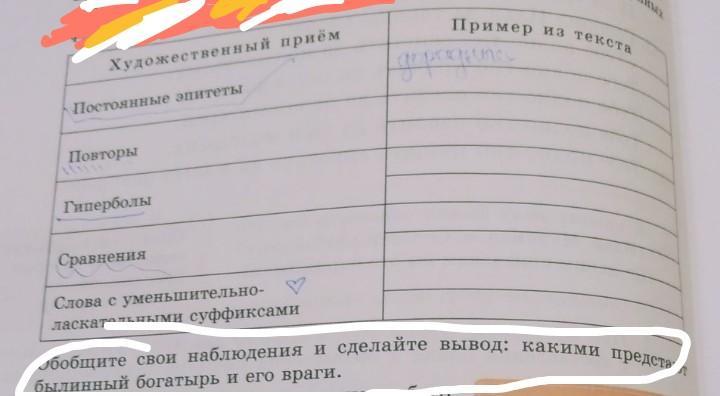 Художественный приём
Пример из текста
Постоянные эпитеты
Повторы
Гиперболы
Сравнения
Слова с уменьшительно-
ласкательными суффиксами
Обобщите свои наблюдения и сделайте вывод: какими
былинный богатырь и его враги.